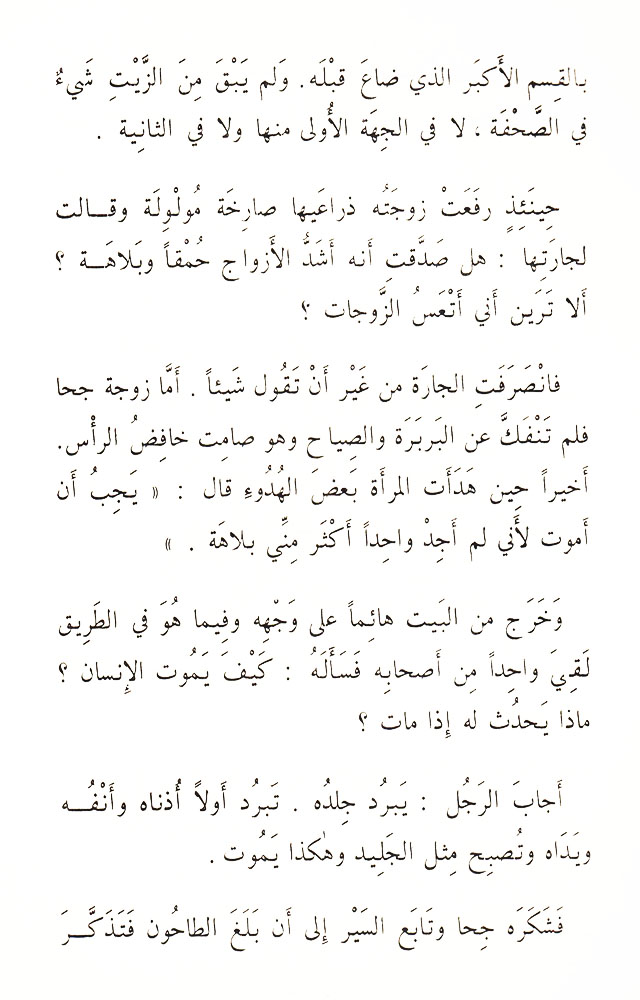 بالقِسم الأَكبَر الذي ضاعَ قبْلَه. وَلم يَبْقَ مِنَ الزَّيْتِ شَيءٌ
في الصَّحْفَة ، لا في الجِهَة الأُولى منها ولا في الثانِية .
حِينَئِذٍ رفَعَتْ زوجَتُه ذراعَيها صارِخَة مُولْوِلَة وقـالت
لجارَتِها : هل صَدَّقتِ أَنه أَشَدُّ الأَزواج حُمْقاً وبَلاهَـة ؟
أَلا تَرَين أَني أَتْعَسُ الزَّوجات ؟
فانْصَرَفَتِ الجارَة من غَيْر أَنْ تَقُول شَيئاً . أَمَّا زوجة جحا
فلم تَنْفَكَّ عن البَربَرَة والصِياح وهو صامِت خافِضُ الرأْس.
أَخيراً حِين هَدَأَت المرأَة بَعضَ الهُدُوءِ قال : « يَجِبُ أَن
أَموت لأَني لم أَجِدْ واحِداً أَكْثَر مِنِّي بلاهَة . »
وَخَرَج من البَيت هائِماً على وَجْهِه وفِيما هُوَ في الطَرِيق
لَقِيَ واحِداً مِن أَصحابِه فَسَأَلَهُ : كَيْفَ يَمُوت الإِنسان ؟
ماذا يَحدُث له إِذا مات ؟
أَجابَ الرَجُل : يَبرُد جِلدُه . تَبرُد أَولاً أُذناه وأَنْفُـه
ويَدَاه وتُصبِح مِثل الجَلِيد وهٰكذا يَمُوت .
فَشَكَرَه جِحا وتَابَع السَيْر إِلى أَن بَلَغَ الطاحُون فَتَذَكَّـرَ